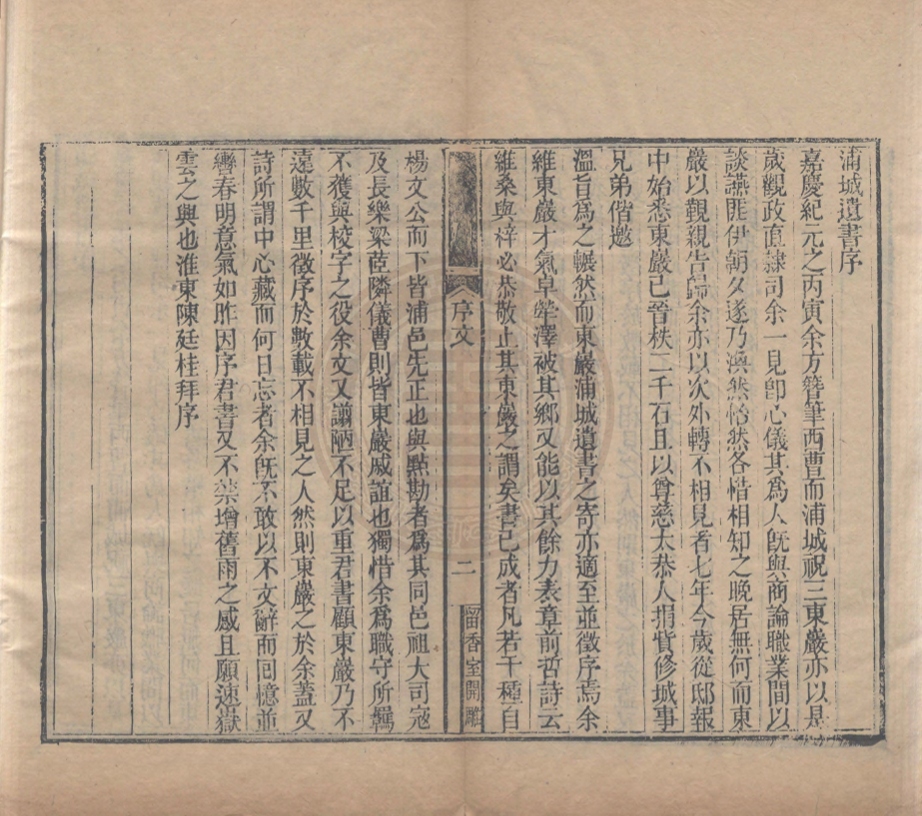 浦城遺書序
嘉慶紀元之丙寅余方簪筆西曹而浦城祝三東巖亦以是
歲觀政直隸司余一見卽心儀其爲人旣與商論職業間以
談讌匪伊朝夕遂乃渙然怡然各惜相知之晚居無何而東
巖以覲親告歸余亦以次外轉不相見者七年今歲從邸報
中始悉東巖已晉秩二千石且以尊慈太恭人捐貲修城事
兄弟偕邀
溫旨爲之囅然而東巖浦城遺書之寄亦適至並徵序焉余
維東巖才氣卓犖澤被其鄉又能以其餘力表章前哲詩云
維桑與梓必恭敬止其東巖之謂矣書已成者凡若干種自
序文
二
留香室開雕
楊文公而下皆浦邑先正也與點勘者爲其同邑祖大司寇
及長樂梁茝隣儀曹則皆東巖戚誼也獨惜余爲職守所羈
不獲與校字之役余文又譾陋不足以重君書顧東巖乃不
遠數千里徵序於數載不相見之人然則東巖之於余蓋又
詩所謂中心藏而何日忘者余旣不敢以不文辭而回憶並
轡春明意氣如昨因序君書又不禁增舊雨之感且願速嶽
雲之興也淮東陳廷桂拜序